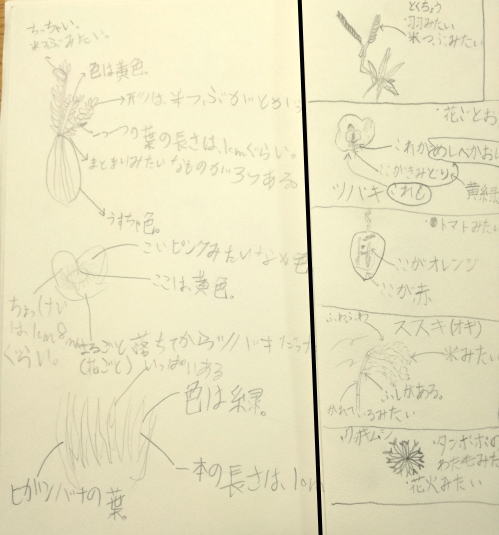 ちっちゃい。
米つぶみたい。
色は黄色。
米つぶ
一つ一つの葉の長さは、1cmぐらい。
まとまりみたいなものが3つある。
うすちゃ色。
こいピンクみたいな
ここは、黄色。
ちょっけい
は1cm8mm
ぐらい。
まるごと落ちてからツバキ
(花ごと)
いっぱいある
色は緑。
一本の長さは、1cm
ヒガンバナの葉。
とくちょう
・羽みたい
米つぶみたい
・花ごとお
これが
めしべ
ここがきみどり
ツバキ
これも
黄緑
・トマトみたい
ここがオレンジ
ここが赤
ふわふわ
ススキ(オギ)
米みたい
ふしがある。
かれているみたい
・タンポポの
わた毛みた
・花火みたい